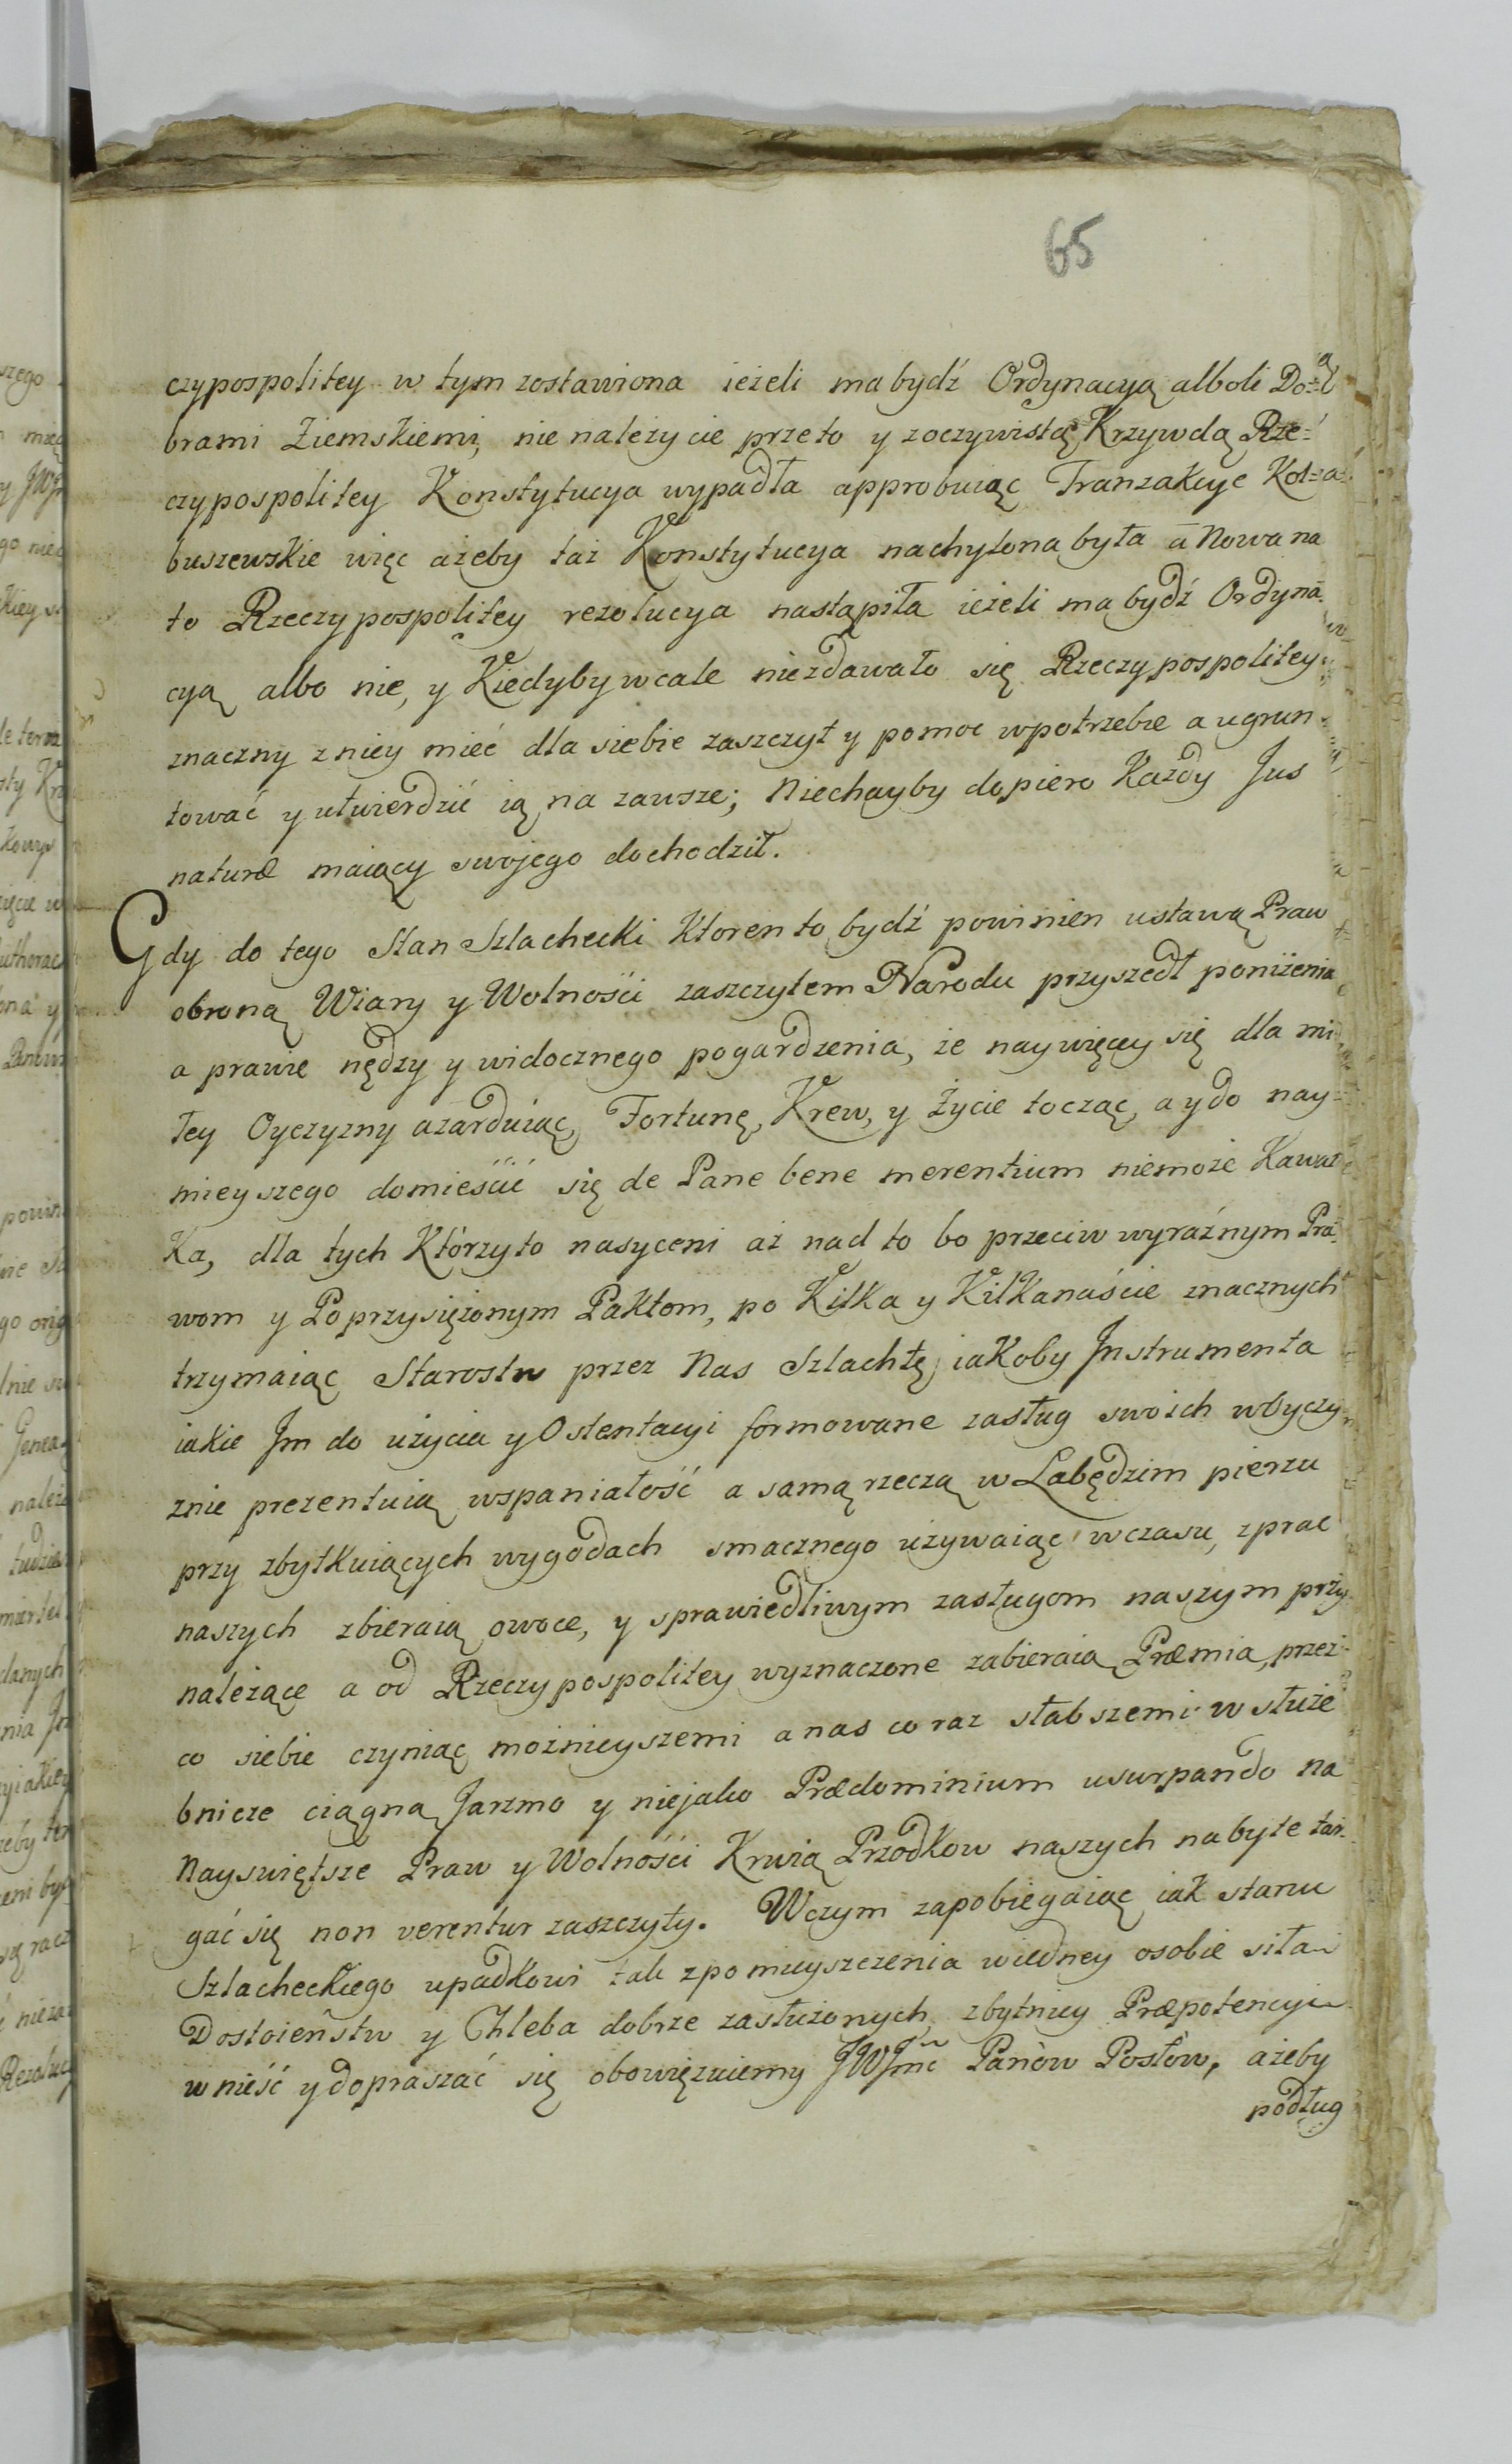 65
czypospolitey w tym zostawiona ieżeli ma bydź Ordynacyą alboli Do=
brami Ziemskiemi, nie należycie przeto y zoczywistą Krzywdą Rze=
czypospolitey Konstytucya wypadła approbuiąc Tranzakcye Kol=
buszewskie więc ażeby taż Konstytucya nachylona była a Nowa na
to Rzeczypospolitey rezolucya nastąpiła ieżeli ma bydź Ordyna
cyą albo nie, y Kiedyby wcale niezdawało się Rzeczypospolitey
znaczny z niey mieć dla siebie zaszczyt y pomoc wpotrzebie a ugrun
tować y utwierdzić ią na zawsze; Niechayby dopiero Każdy Jus
naturæ maiący swojego dochodził.
Gdy do tego Stan Szlachecki Ktoren to bydź powinien ustawą Praw
obroną Wiary y Wolności zaszczytem Narodu przyszedł poniżenia
a prawie nędzy y widocznego pogardzenia, że naywięcey się dla mi
łey Oyczyzny azarduiąc, Fortunę, Krew, y Życie tocząc, a y do nay=
mieyszego domieścić się de Pane bene merentium niemoże Kawał
Ka, dla tych Którzyto nasyceni aż nad to bo przeciw wyraźnym Pra
wom y Poprzysiężonym Paktom, po Kilka y Kilkanaście znacznych
trzymaiąc Starostw przez Nas Szlachtę, iakoby Jnstrumenta
iakie Jm do użycia y Ostentacyi formowane zasług swoich wOyczy
znie prezentuią wspaniałość a samą rzeczą w Łabędzim pierzu
przy zbytkuiących wygodach smacznego używaiąc wczasu, zprac
naszych zbieraią owoce, y sprawiedliwym zasługom naszym przy
należące a od Rzeczypospolitey wyznaczone zabieraią Præmia, przez
co siebie czyniąc możnieyszemi a nas co raz słabszemi w służe
bnicze ciągną Jarzmo y niejako Prædominium usurpando na
Nayswiętsze Praw y Wolności Krwią Przodkow naszych nabyte tar
gać się non verentur zaszczyty. Wczym zapobiegaiąc iak stanu
Szlacheckiego upadkowi tak z pomieyszczenia wiedney osobie siła
Dostoieństw y Chleba dobrze zasłużonych, zbytniey Præpotencyi
wnieść y dopraszać się obowięzuiemy JWJmć Panów Posłów, ażeby
podług